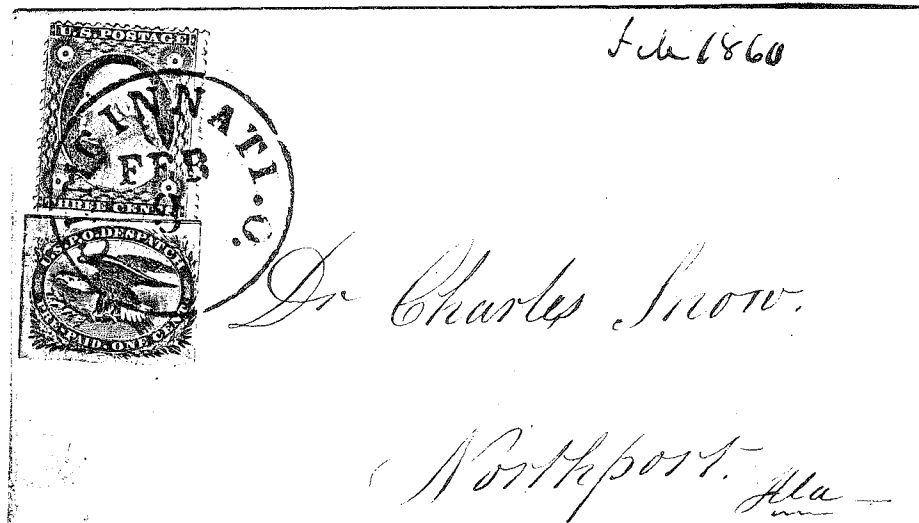 Feb 1860
U.S. POSTAGE
THREE CENTS
CINCINNATI. O.
FEB
9
U.S.P.O. DESPATCH
PRE-PAID. ONE CENT
Dr Charles Snow.
Northport. Ala